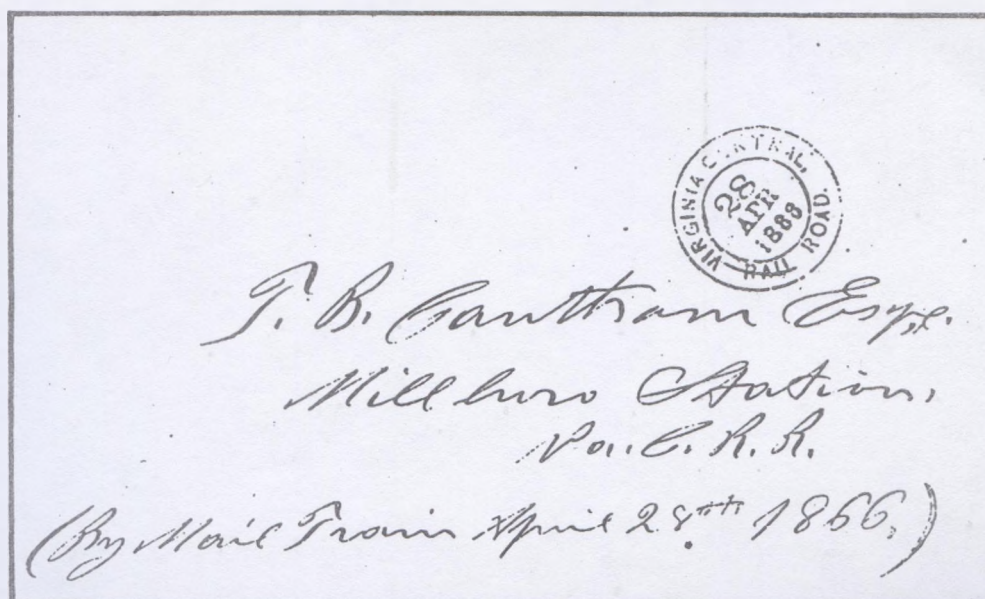 VIRGINIA CENTRAL,
RAIL ROAD.
28
APR
1888
T. B. Cantham Esqr.
Millboro Station,
Va. C. R. R.
(By Mail Train April 28th 1866.)